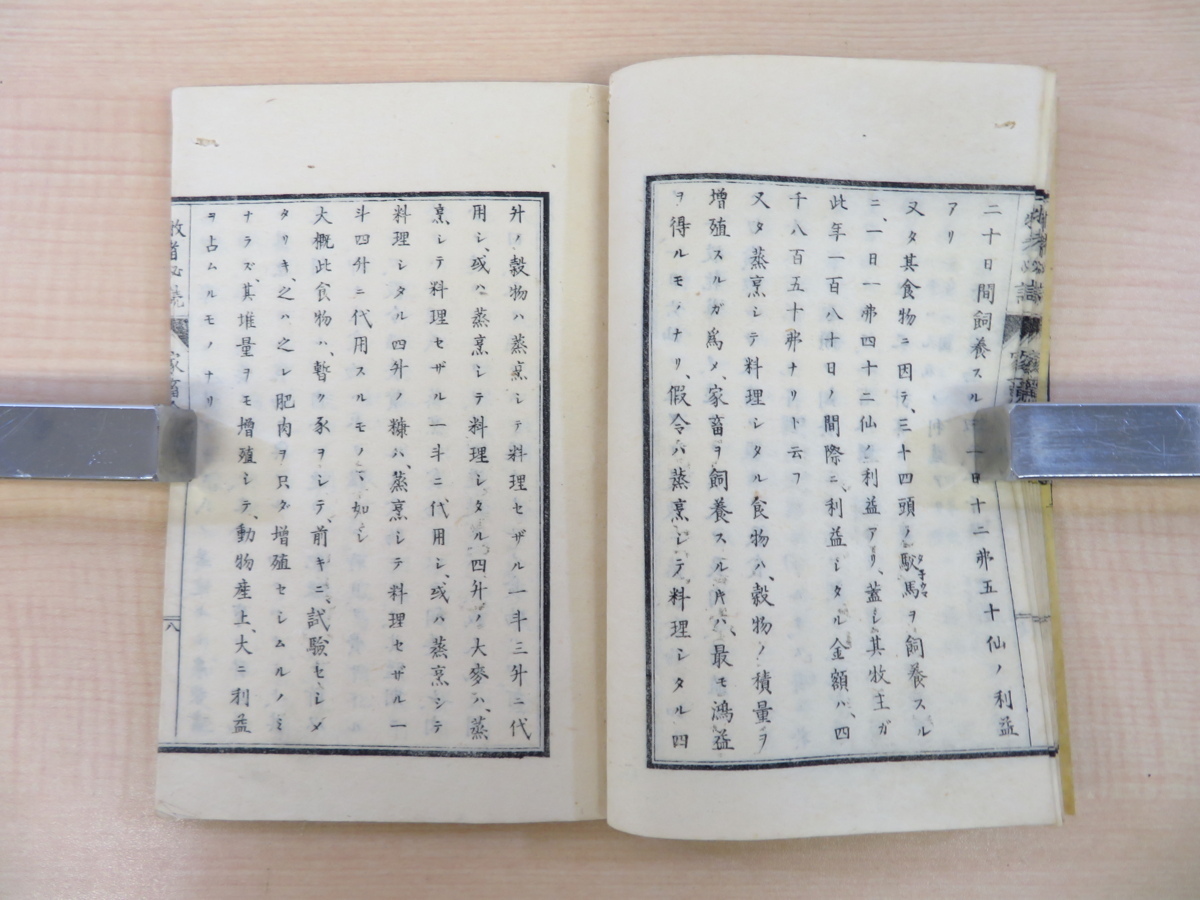 二十日間飼養スルニ、一日十二弗五十仙ノ利益
アリ
又タ其食物ニ因テ、三十四頭ノ駄馬ヲ飼養スル
ニ、一日一弗四十二仙ノ利益アリ、蓋シ其牧主ガ
此年一百八十日ノ間際ニ、利益シタル金額ハ、四
千八百五十弗ナリト云フ
又タ蒸烹シテ料理シタル食物ハ、穀物ノ積量ヲ
増殖スルガ為メ、家畜ヲ飼養スル𪜈ハ、最モ鴻益
ヲ得ルモノナリ、假令バ蒸烹シテ、料理シタル四
升ノ穀物ハ蒸烹シテ料理セザル一斗三升ニ代
用シ、或ハ蒸烹シテ料理シタル四升ノ大麥ハ、蒸
烹シテ料理セザル一斗ニ代用シ、或ハ蒸烹シテ
料理シタル四升ノ糠ハ、蒸烹シテ料理セザル一
斗四升ニ代用スルモノヽ如シ
大概此食物ハ、暫ク豕ヲシテ、前キニ、試驗セシメ
タリキ、之ハ之レ肥肉ヲ只ダ増殖セシムルノミ
ナラズ、其堆量ヲモ増殖シテ、動物産上、大ニ利益
ヲ占ムルモノナリ
牧畜必読
家畜
八